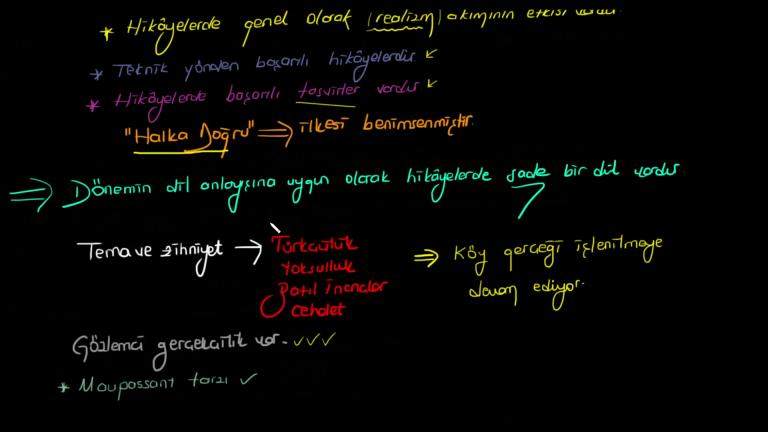 * Hikâyelerde genel olarak (realizm) akımının etkisi vardır.
* Teknik yönden başarılı hikâyelerdir.
* Hikâyelerde başarılı tasvirler vardır
"Halka Doğru" ⇒ ilkesi benimsenmiştir.
⇒ Dönemin dil anlayışına uygun olarak hikâyelerde sade bir dil vardır
Tema ve zihniyet → Türkçülük
Yoksulluk
Batıl inançlar
Cehalet
⇒ Köy gerçeği işlenilmeye
devam ediyor.
Gözlemci gerçekçilik var. ✓✓✓
* Maupassant tarzı ✓